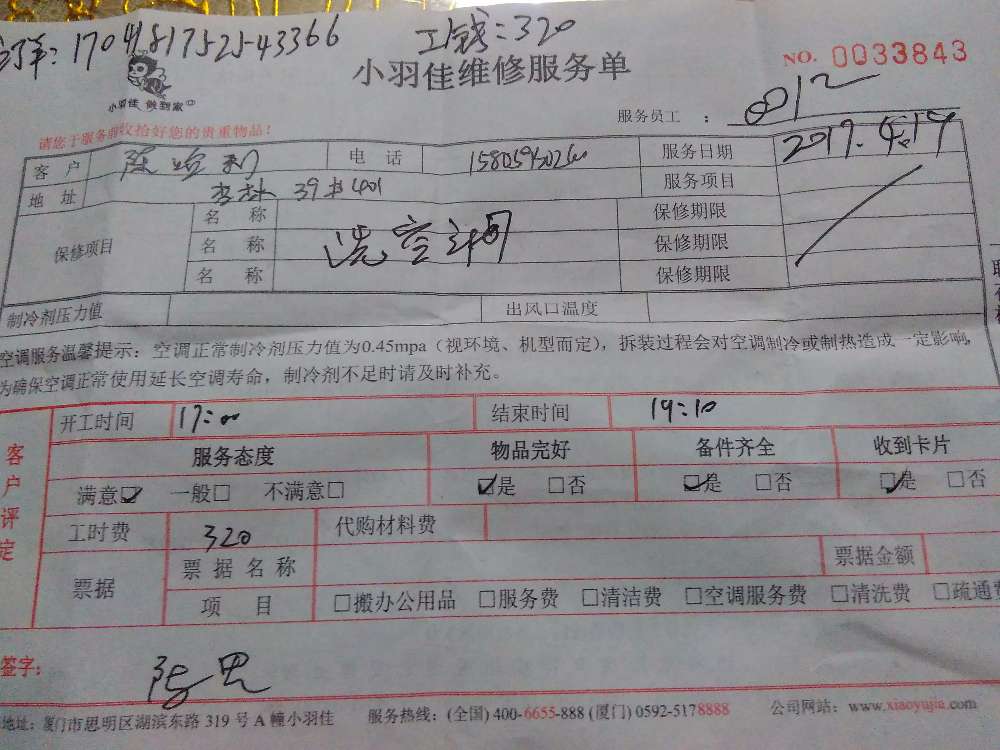 170418175254 3366 工钱:320
小羽佳 做到家
小羽佳维修服务单
NO. 0033843
服务员工 : 8012
请您于服务前收拾好您的贵重物品!
客 户 电 话 服务日期 2017.4.19
地 址 39 401 服务项目
保修项目 名 称 洗空调 保修期限
名 称 保修期限
名 称 保修期限
制冷剂压力值 出风口温度
空调服务温馨提示:空调正常制冷剂压力值为0.45mpa(视环境、机型而定),拆装过程会对空调制冷或制热造成一定影响,
为确保空调正常使用延长空调寿命,制冷剂不足时请及时补充。
客户评定
开工时间 17:00 结束时间 19:10
服务态度 物品完好 备件齐全 收到卡片
满意☑ 一般□ 不满意□ ☑是 □否 ☑是 □否 ☑是 □否
工时费 320 代购材料费
票据 票 据 名 称 票据金额
项 目 □搬办公用品 □服务费 □清洁费 □空调服务费 □清洗费 □疏通费
签字:
地址:厦门市思明区湖滨东路 319 号 A 幢小羽佳 服务热线:(全国) 400-6655-888 (厦门) 0592-5178888 公司网站:www.xiaoyujia.com